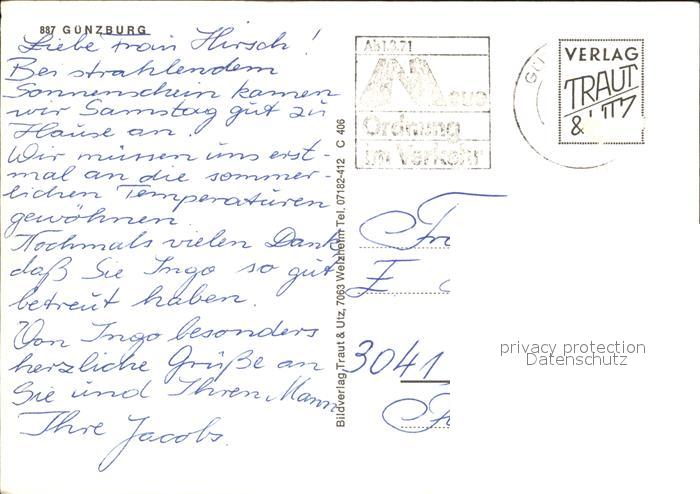 887 GÜNZBURG
Liebe Frau Hirsch!
Bei strahlendem
Sonnenschein kamen
wir Samstag gut zu
Hause an.
Wir müssen uns erst-
mal an die sommer-
lichen Temperaturen
gewöhnen.
Nochmals vielen Dank
daß Sie Ingo so gut
betreut haben.
Von Ingo besonders
herzliche Grüße an
Sie und Ihren Mann
Ihre Jacobs.
Bildverlag Traut & Utz, 7063 Welzheim Tel. 07182-412 C 406
Ab 1.3.71
Neue
Ordnung
im Verkehr
VERLAG
TRAUT
& UTZ
Fr
3041
privacy protection
Datenschutz